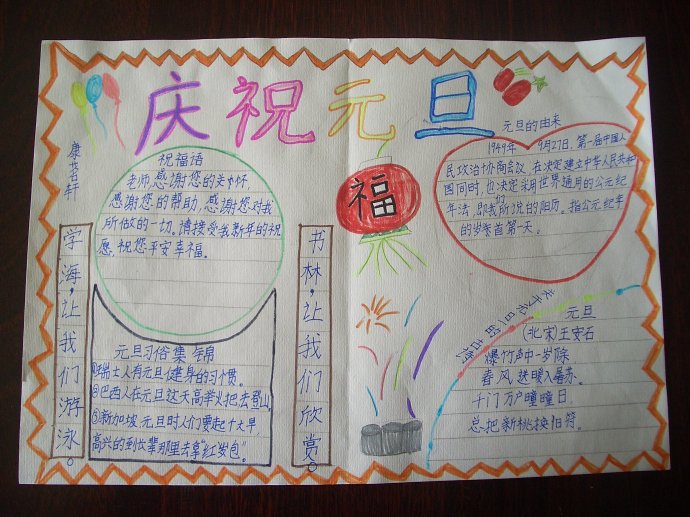 庆祝元旦
康茗轩
祝福语
老师,感谢您的关怀,
感谢您的帮助,感谢您对我
所做的一切。请接受我新年的祝
愿,祝您平安幸福。
学海,让我们游泳。
元旦习俗集锦
①瑞士人有元旦健身的习惯。
②巴西人在元旦这天高举火把去登山。
③新加坡元旦时人们要起个大早,
高兴的到长辈那里去拿“红岁包”。
书林,让我们欣赏。
福
元旦的由来
1949年9月27日,第一届中国人
民政治协商会议,在决定建立中华人民共和
国同时,也决定采用世界通用的公元纪
年法,即我们所说的阳历。指公元纪年
的岁首第一天。
关于元旦的古诗
元旦
(北宋)王安石
爆竹声中一岁除
春风送暖入屠苏.
千门万户曈曈日,
总把新桃换旧符.